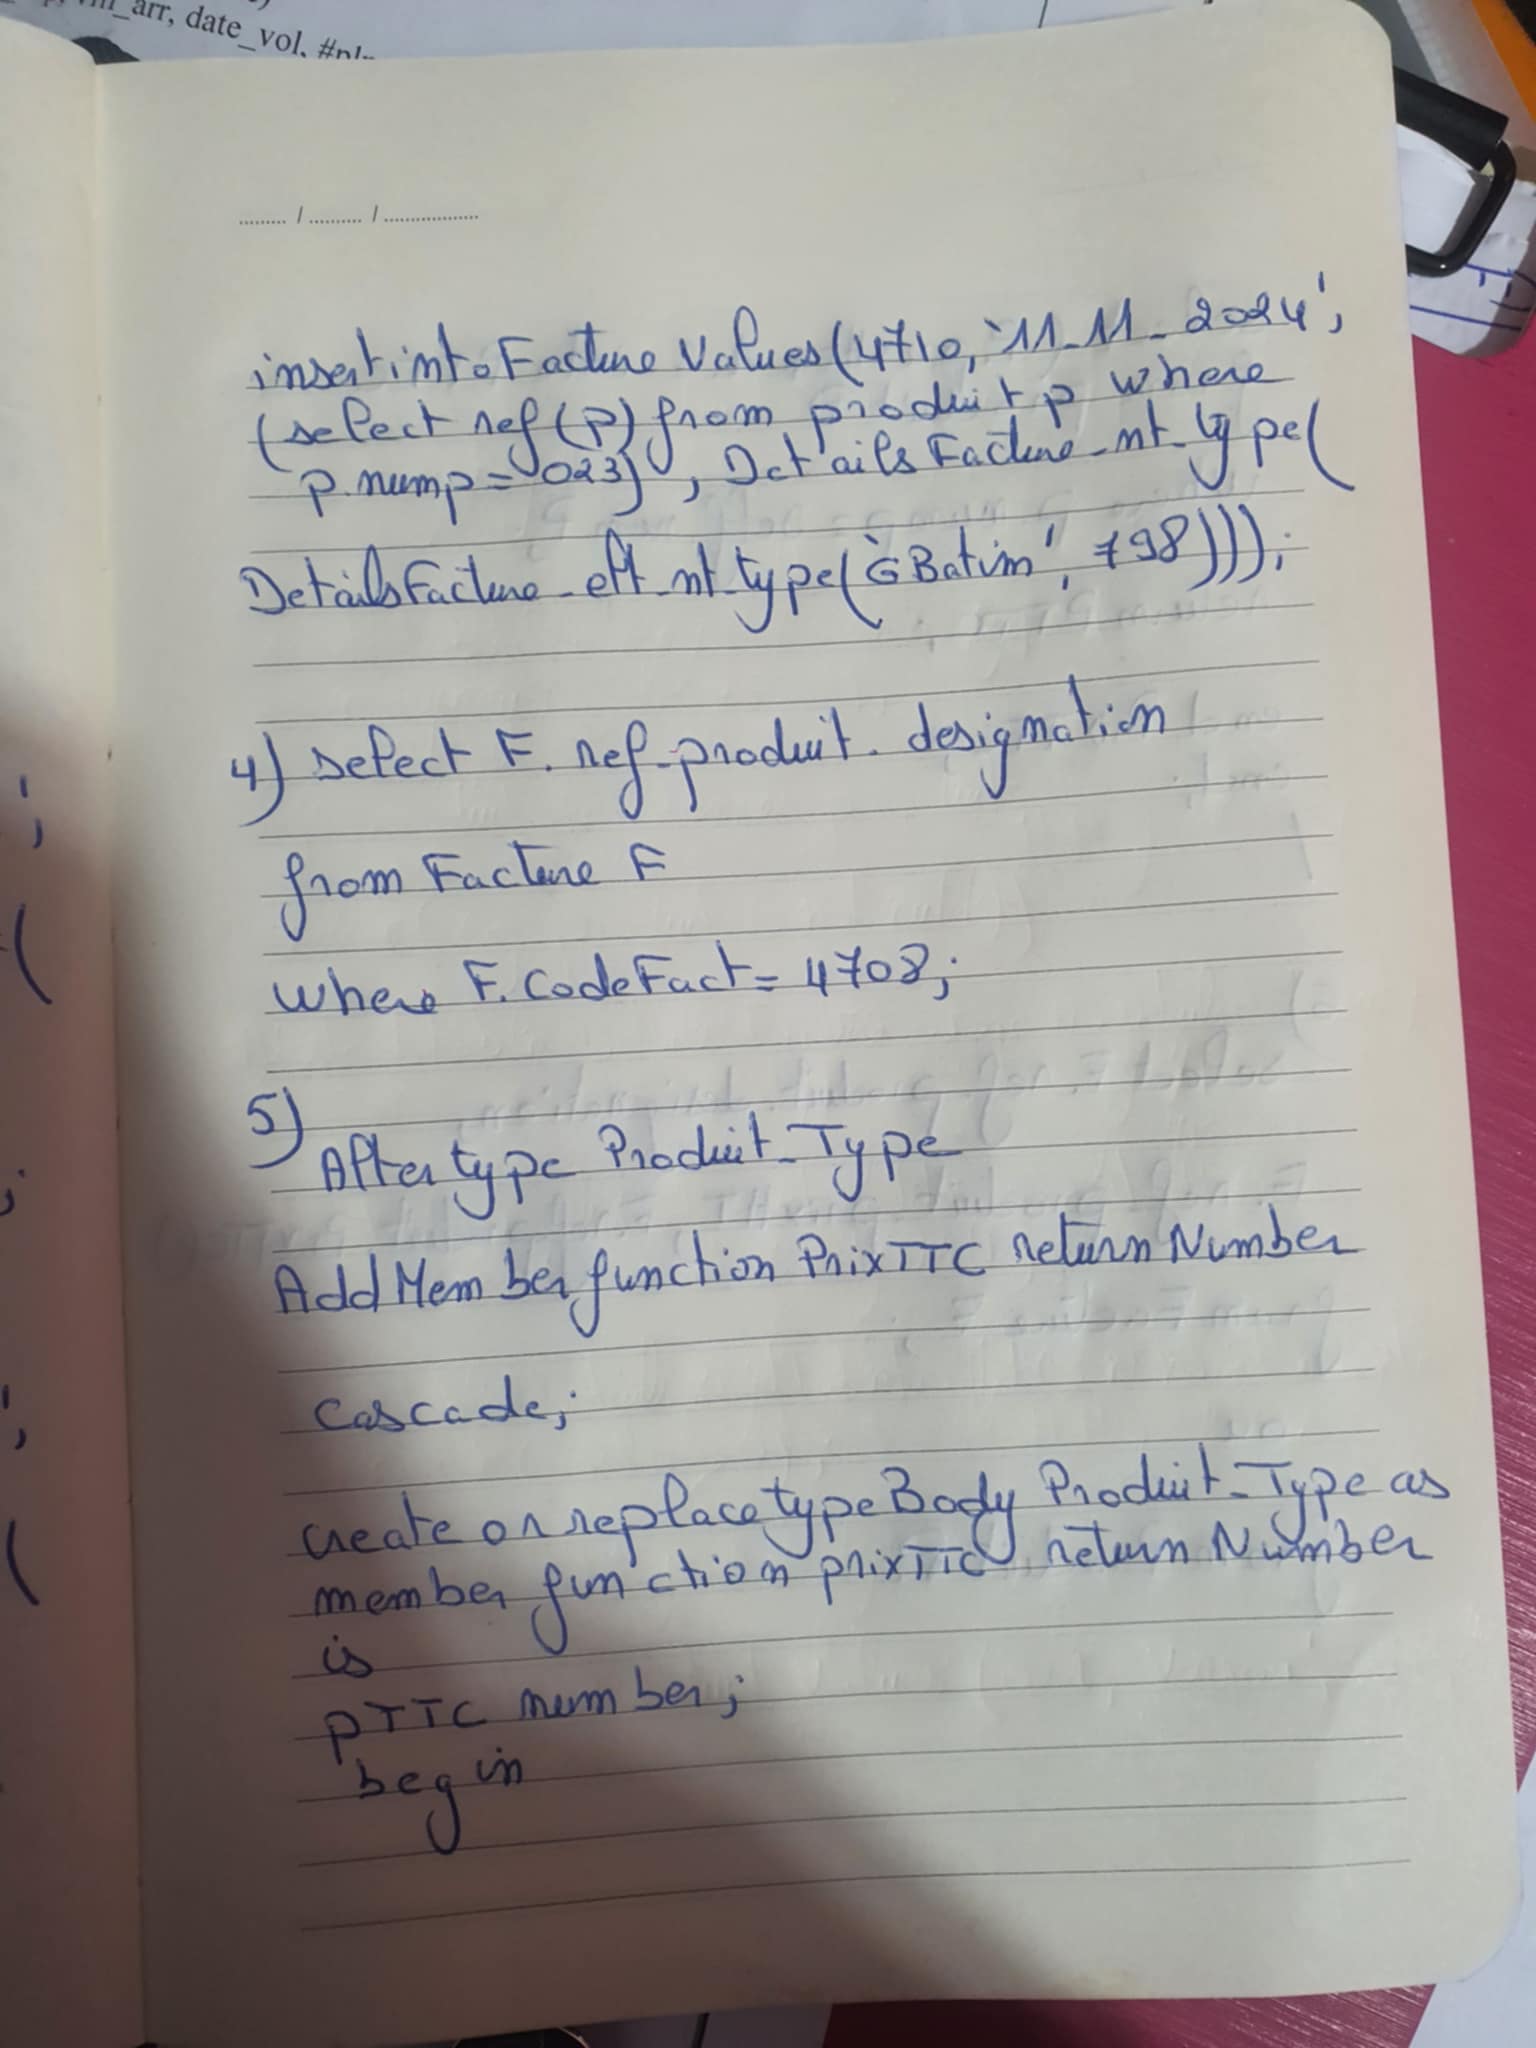 arr, date_vol, #pl
......... / .......... / ..................
insert into Facture Values(4710, '11_11_2024',
(select ref(p) from produit p where
p.nump = 023), DetailsFacture_nt_type(
DetailsFacture_elt_nt_type('GBatim', 798)));
4) select F.ref_produit.designation
from Facture F
where F.CodeFact = 4708;
5)
Alter type Produit_Type
Add Member function PrixTTC return Number
Cascade;
create or replace type Body Produit_Type as
member function prixTTC return Number
is
pTTC number;
begin